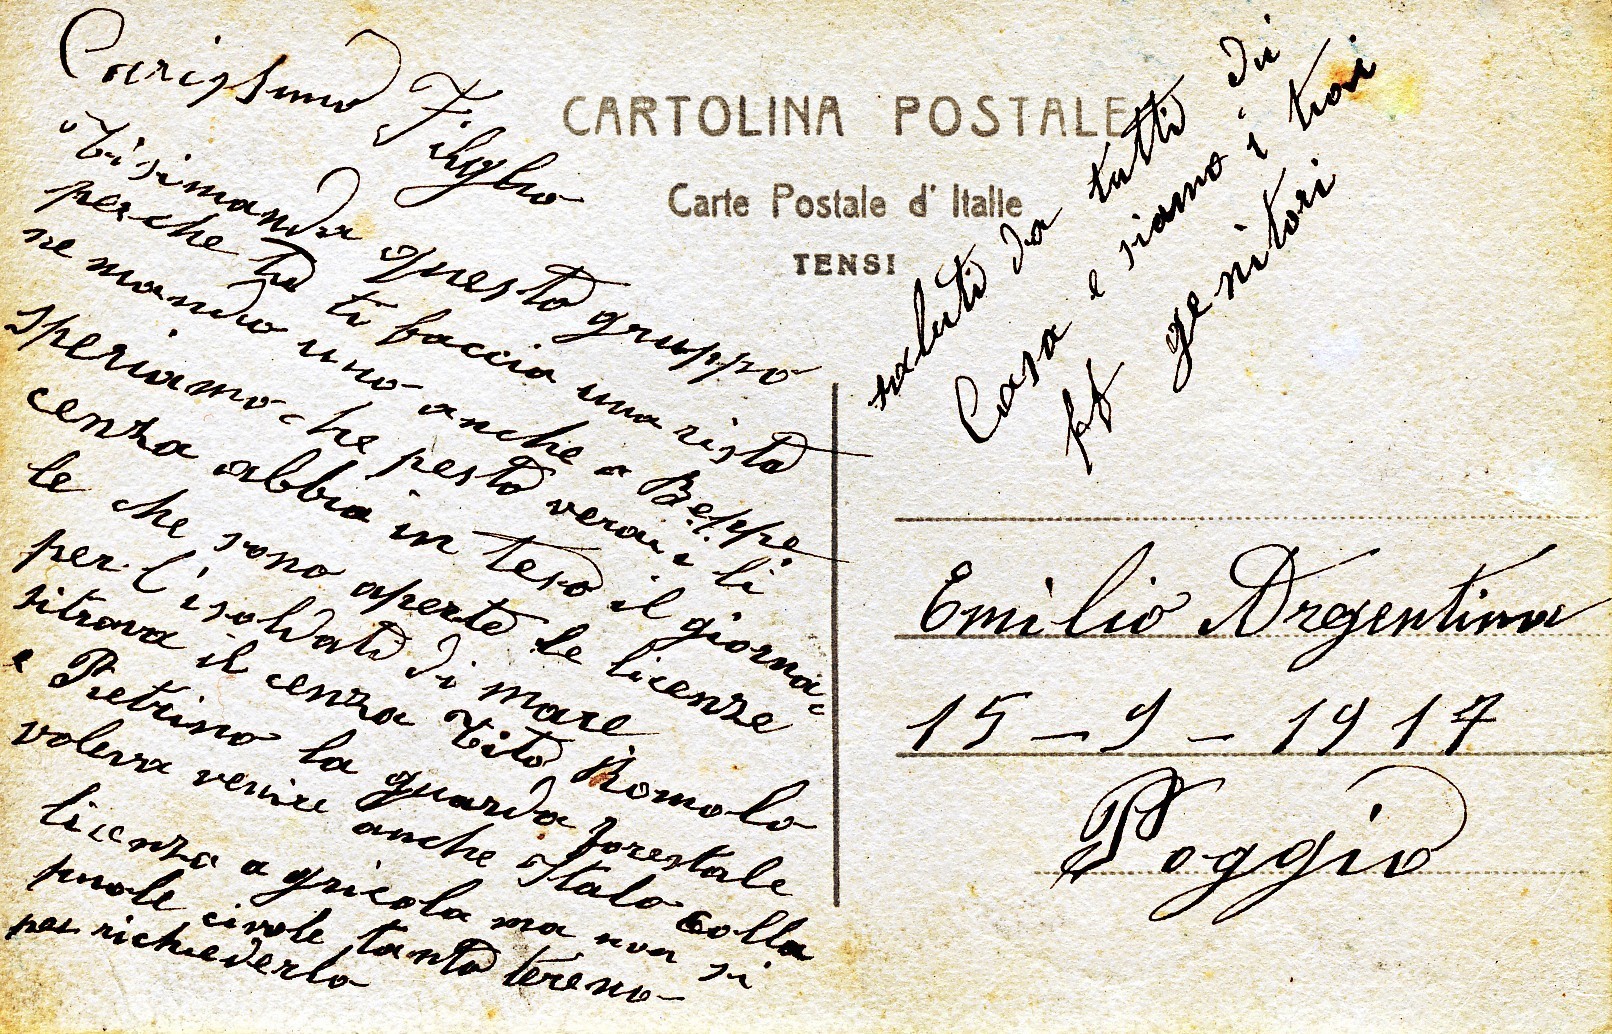 CARTOLINA POSTALE
Carte Postale d' Italie
TENSI
Carissimo Figlio
ti si manda questo gruppo
perche tu ti baccia una vista
ne mando uno anche a Beppe
speriamo che pesto verai i li
cenza abbia in teso il giorna-
le che sono aperte le licenze
per l'isoldati di mare
sitrova il cenza Tito Romolo
e Pietrino la guarda forestale
voleva venire anche Italo colla
licenza agricola ma non si
puole civole tanto tereno
per richiederla
saluti da tutti di
Casa e siamo i tuoi
genitori
Emilio Argentina
15-9-1917
Poggio